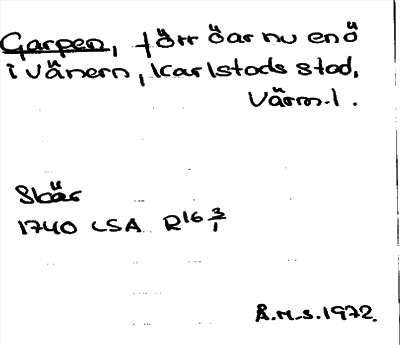 Garpen, förr öar nu en ö
i Vänern, Karlstads stad,
Värml.
Skär
1740 LSA R16 3/1
Å.M-S. 1972.